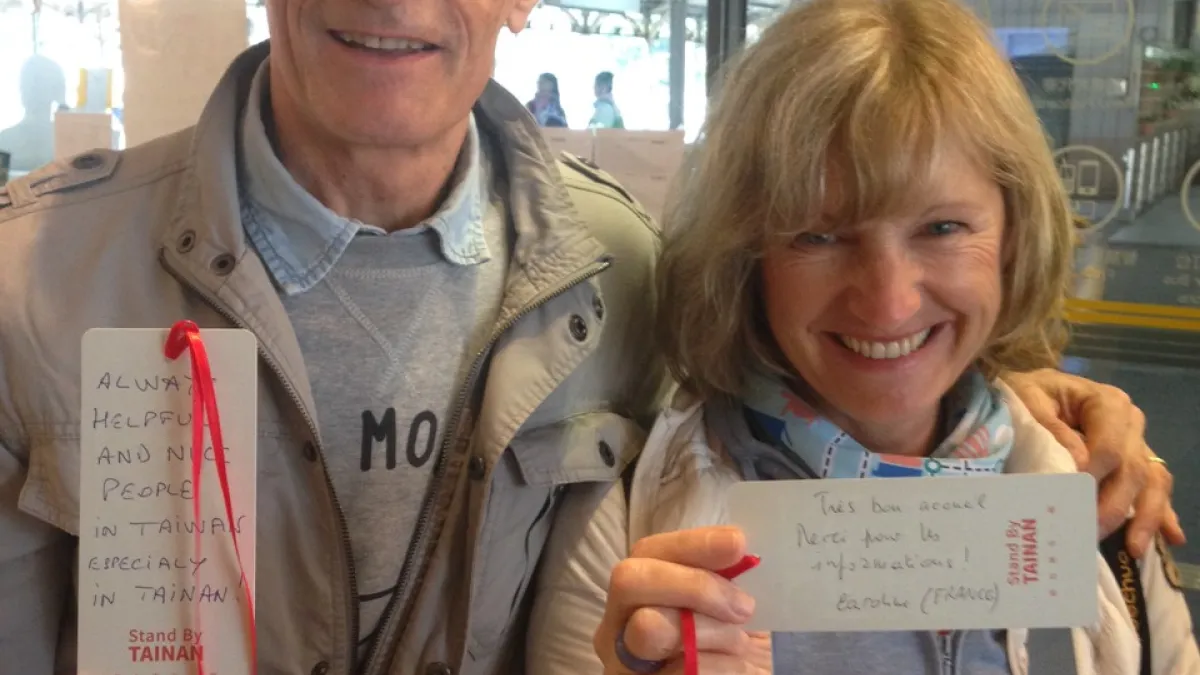 ALWAYS
HELPFUL
AND NICE
PEOPLE
IN TAIWAN
ESPECIALY
IN TAINAN.
Stand By
TAINAN
MO
Très bon accueil
Merci pour les
informations!
Caroline (FRANCE)
Stand By
TAINAN